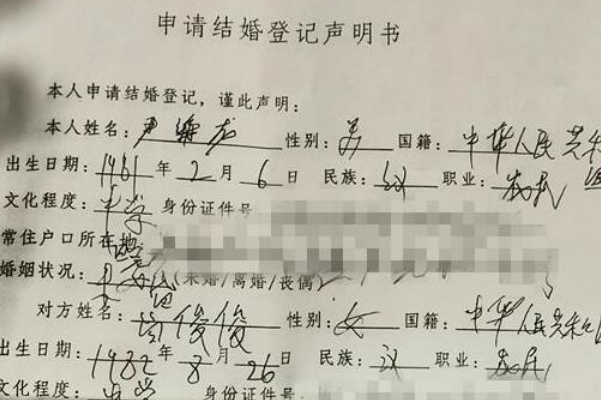 申请结婚登记声明书
本人申请结婚登记，谨此声明：
本人姓名： 性别：男 国籍：中华人民共和
出生日期：1981年2月6日 民族：汉 职业：农民
文化程度：中学 身份证件号
常住户口所在地
婚姻状况： (未婚/离婚/丧偶)
对方姓名：俊俊 性别：女 国籍：中华人民共和
出生日期：1982年8月26日 民族：汉 职业：农民
文化程度：中学 身份证件号